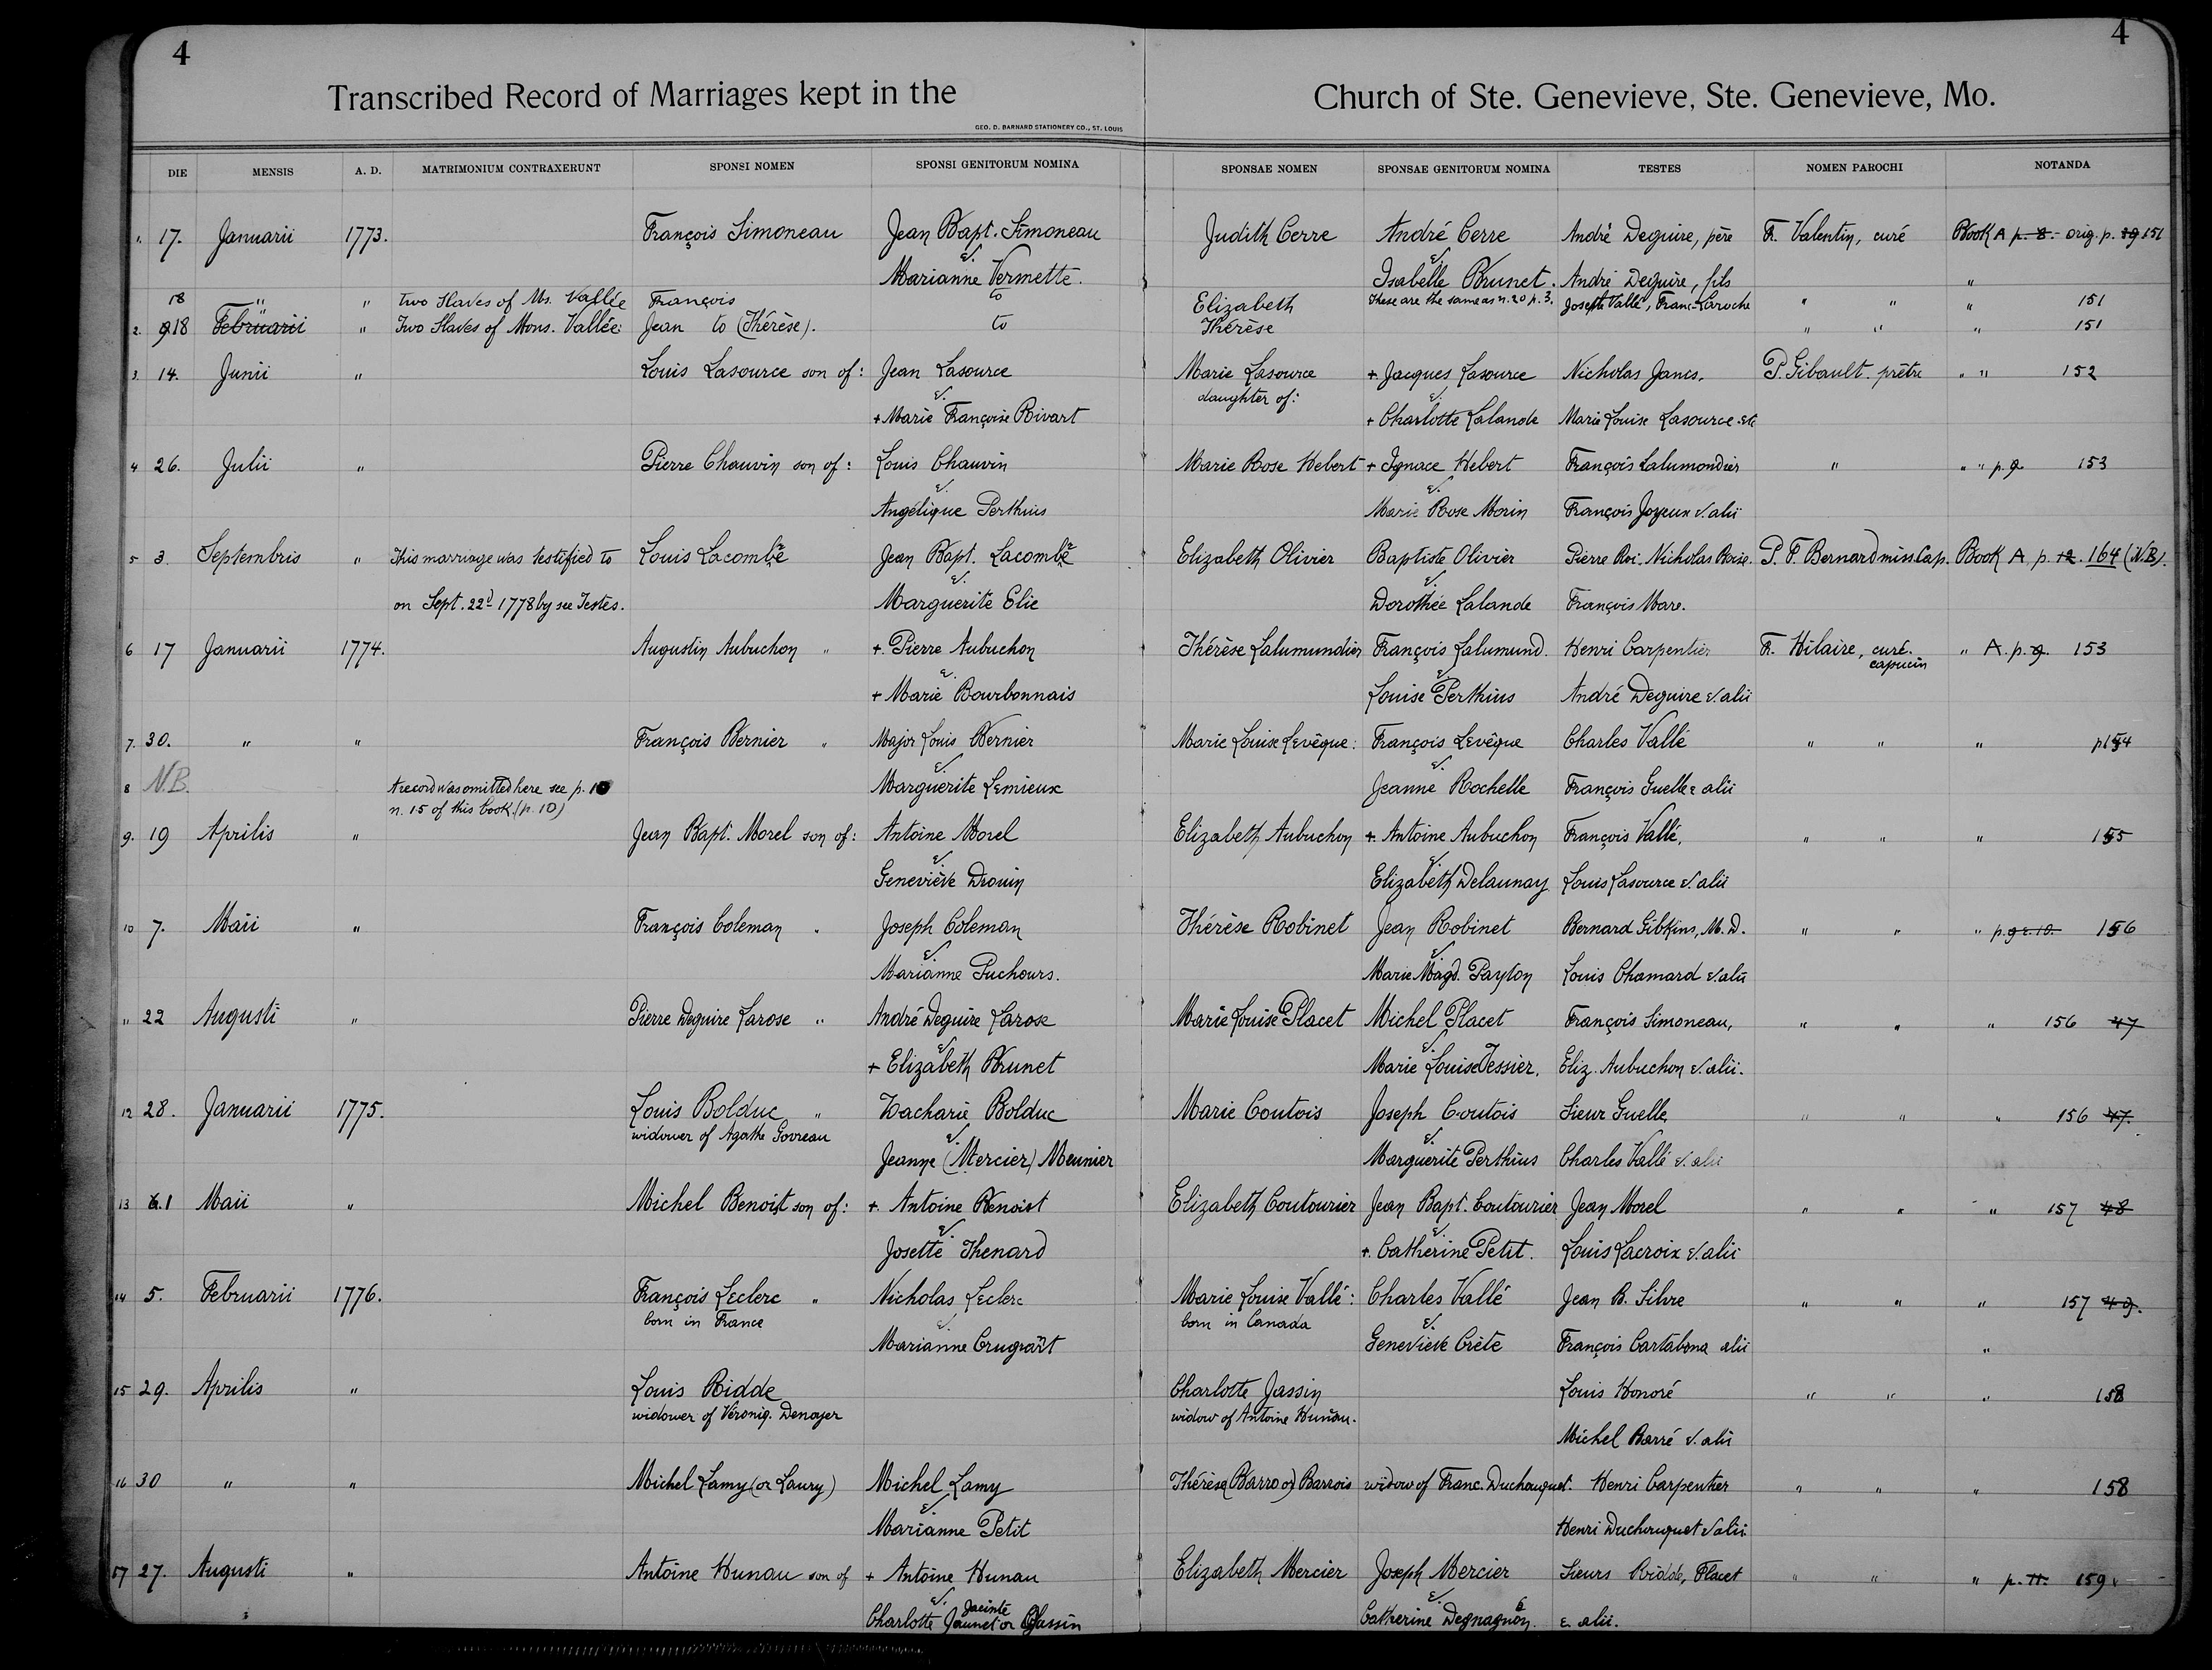 4
4
Transcribed Record of Marriages kept in the Church of Ste. Genevieve, Ste. Genevieve, Mo.
GEO. D. BARNARD STATIONERY CO., ST. LOUIS
DIE MENSIS A. D. MATRIMONIUM CONTRAXERUNT SPONSI NOMEN SPONSI GENITORUM NOMINA SPONSAE NOMEN SPONSAE GENITORUM NOMINA TESTES NOMEN PAROCHI NOTANDA
1. 17. Januarii 1773. François Simoneau Jean Bapt. Simoneau Judith Cerre André Cerre André Deguire, père F. Valentin, curé Book A p. 8. - orig. p. 19 151
&. Marianne Vermette. &. Isabelle Brunet. André Deguire, fils "
18 " " Two Slaves of Ms. Vallée François to Elizabeth These are the same as n. 20 p. 3. Joseph Vallé, Franc. Laroche " " " 151
2. 9 18 Februarii " Two Slaves of Mons. Vallée: Jean to (Thérèse). to Thérèse " " " 151
3. 14. Junii " Louis Lasource son of: Jean Lasource Marie Lasource + Jacques Lasource Nicholas Janis. P. Gibault. prêtre " " 152
&. + Marie Françoise Rivart daughter of: &. + Charlotte Lalande Marie Louise Lasource etc
4 26. Julii " Pierre Chauvin son of: Louis Chauvin Marie Rose Hebert + Ignace Hebert François Lalumondier " " " p. 9. 153
&. Angélique Perthius &. Marie Rose Morin François Joyeux & alii
5 3. Septembris " This marriage was testified to Louis Lacombe Jean Bapt. Lacombe Elizabeth Olivier Baptiste Olivier Pierre Roi. Nicholas Roise. P. F. Bernard miss. Cap. Book A p. 12. 164 (N.B).
on Sept. 22d 1778 by see Testes. &. Marguerite Elie &. Dorothée Lalande François Mare.
6 17 Januarii 1774. Augustin Aubuchon " +. Pierre Aubuchon Thérèse Lalumundier François Lalumund. Henri Carpentier F. Hilaire, curé. capucin " A. p. 9. 153
&. + Marie Bourbonnais &. Louise Perthius André Deguire & alii
7. 30. " " François Bernier " Major Louis Bernier Marie Louise Levêque: François Levêque Charles Vallé " " " p 154
8 N.B. A record was omitted here see p. 10 &. Marguerite Lemieux &. Jeanne Rochelle François Guelle & alii
n. 15 of this book. (p. 10)
9. 19 Aprilis " Jean Bapt. Morel son of: Antoine Morel Elizabeth Aubuchon +. Antoine Aubuchon François Vallé, " " " 155
&. Geneviève Drouin &. Elizabeth Delaunay Louis Lasource & alii
10 7. Maii " François Coleman " Joseph Coleman Thérèse Robinet Jean Robinet Bernard Gibkins, M. D. " " " p. 9 & 10. 156
&. Marianne Puchours. &. Marie Magd. Payton Louis Chamard & alii
" 22 Augusti " Pierre Deguire Larose " André Deguire Larose Marie Louise Placet Michel Placet François Simoneau, " " " 156 47
&. + Elizabeth Brunet &. Marie Louise Tessier. Eliz. Aubuchon & alii.
12 28. Januarii 1775. Louis Bolduc " Zacharie Bolduc Marie Coutois Joseph Coutois Sieur Guelle, " " " 156 47.
widower of Agathe Govreau &. Jeanne (Mercier) Meunier &. Marguerite Perthius Charles Vallé & alii
13 6. 1 Maii " Michel Benoist son of: +. Antoine Benoist Elizabeth Coutourier Jean Bapt. Coutourier Jean Morel " " " 157 48
&. Josette Thenard &. +. Catherine Petit. Louis Lacroix & alii
14 5. Februarii 1776. François Leclerc " Nicholas Leclerc Marie Louise Vallé: Charles Vallé Jean B. Silvre " " " 157 49.
born in France &. Marianne Crugrart born in Canada &. Geneviève Crête François Cartabona alii "
15 29. Aprilis " Louis Ridde Charlotte Jassin Louis Honoré " " " 158
widower of Véroniq. Denoyer widow of Antoine Hunau. Michel Barré & alii
16 30 " " Michel Lamy (or Laury) Michel Lamy Thérèse (Barro or) Barrois widow of Franc. Duchouquet. Henri Carpentier " " " 158
&. Marianne Petit Henri Duchouquet & alii
17 27. Augusti " Antoine Hunau son of + Antoine Hunau Elizabeth Mercier Joseph Mercier Sieurs Ridde, Placet " " " p. 11. 159.
&. Charlotte Jaunet or Jacinte Jassin &. Catherine Degnagnon. & alii.